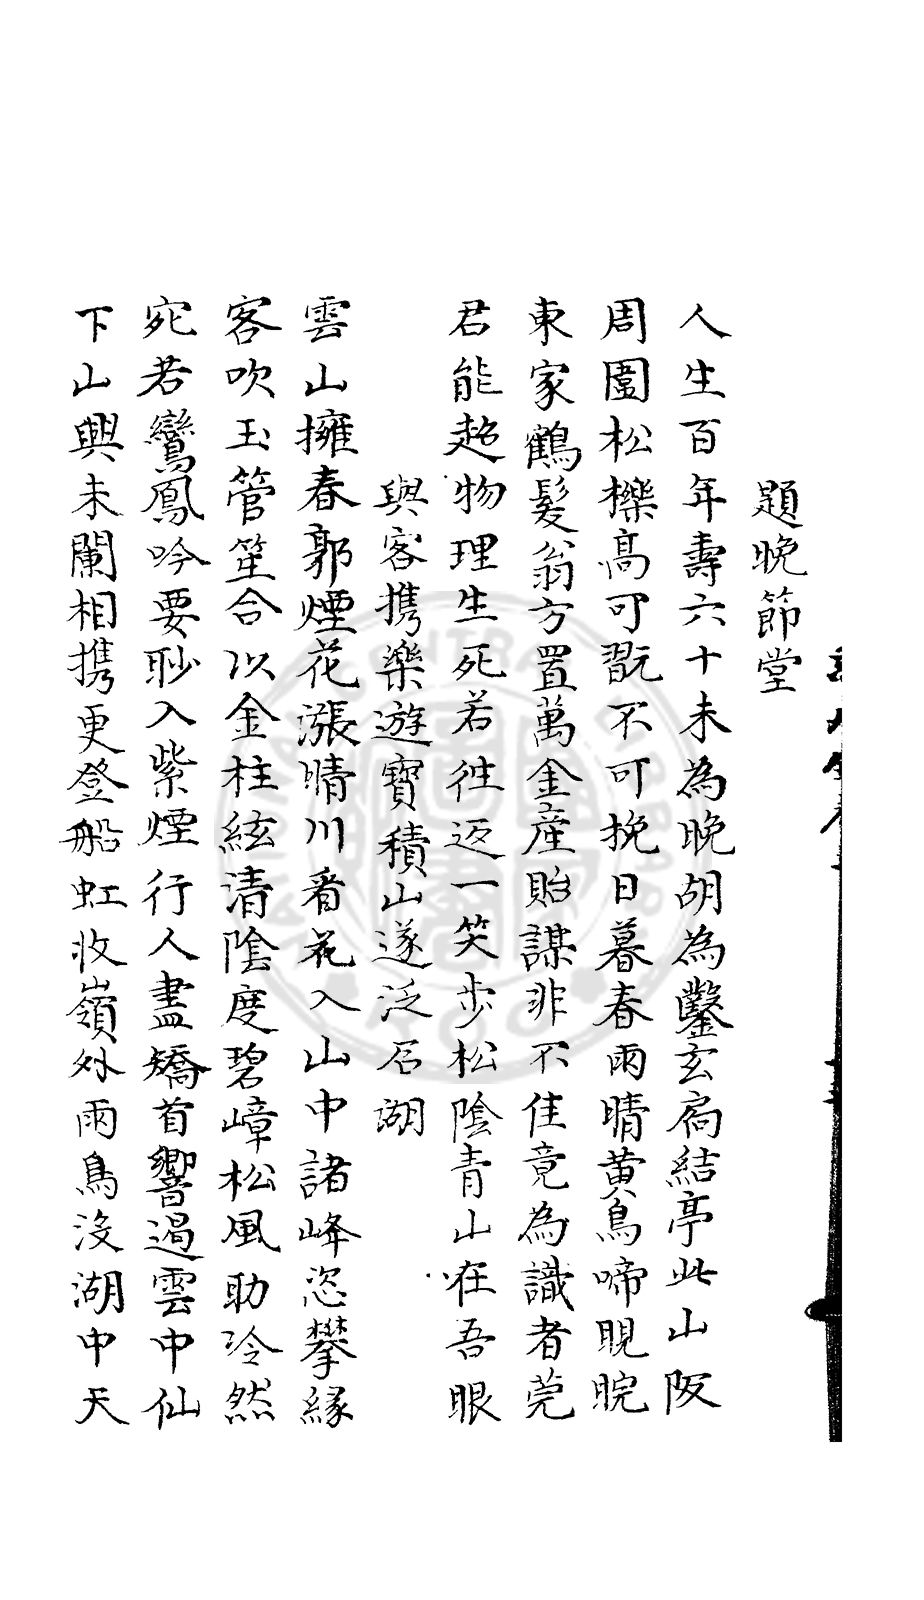 題晚節堂
人生百年壽六十未為晚胡為鑿玄扃結亭此山阪
周圍松櫟高可翫不可挽日暮春雨晴黃鳥啼睍睆
東家鶴髮翁方置萬金產貽謀非不佳竟為識者莞
君能超物理生死若徃返一笑步松陰青山在吾眼
與客携樂遊寶積山遂泛石湖
雲山擁春郭煙花漲晴川看花入山中諸峰恣攀緣
客吹玉管笙合以金柱絃清陰度碧嶂松風助泠然
宛若鸞鳳吟要眇入紫煙行人盡矯首響遏雲中仙
下山興未闌相携更登船虹收嶺外雨鳥沒湖中天